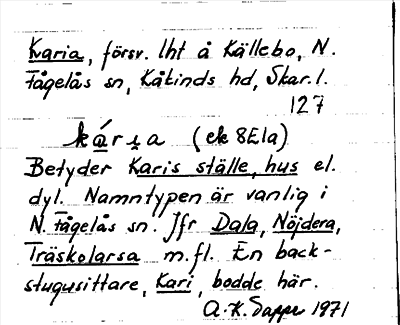 Karia, försv. lht å Källebo, N.
Fågelås sn, Kåkinds hd, Skar. l.
127
kárıa (ek 8E1a)
Betyder Karis ställe, hus el.
dyl. Namntypen är vanlig i
N. Fågelås sn. Jfr Dala, Nöjdera,
Träskolarsa m.fl. En back-
stugusittare, Kari, bodde här.
A.K. Sappe 1971